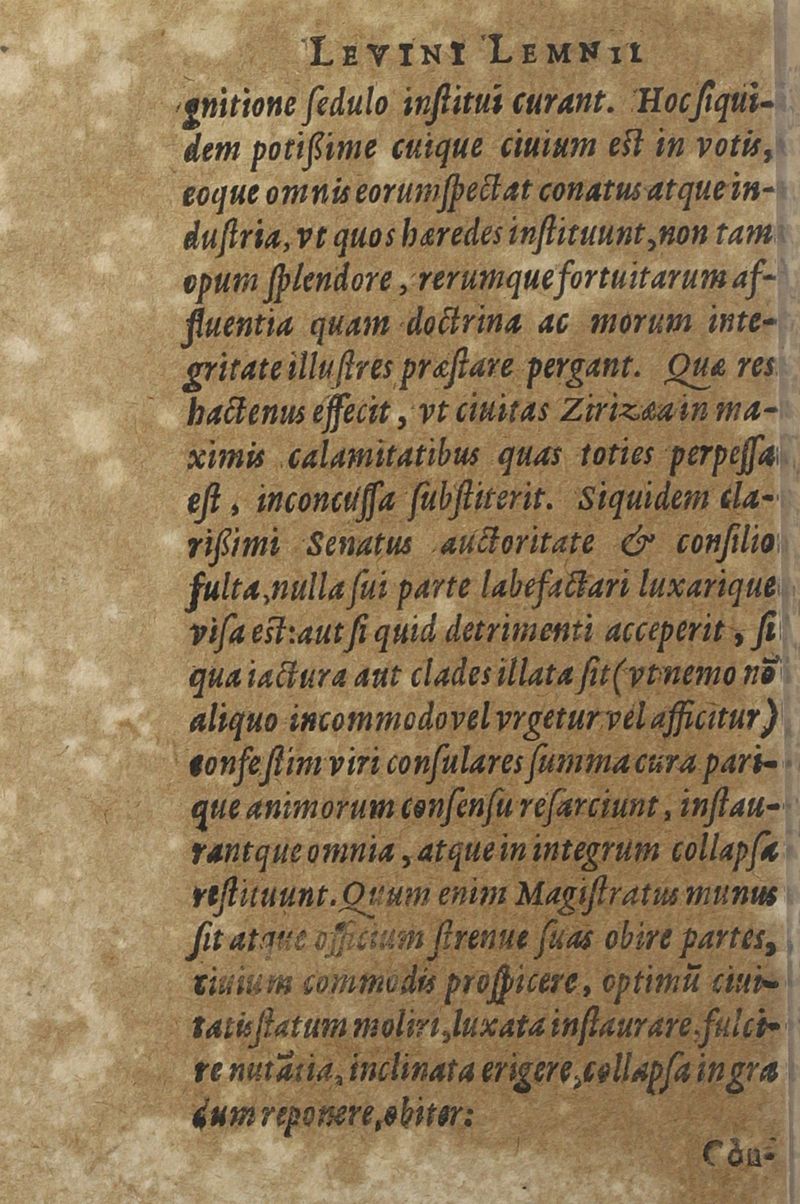 LEVINI LEMNII
gnitione ſedulo inſtitui curant. Hoc ſiqui-
dem potiſsime cuique ciuium eſt in votis,
eoque omnis eorum ſpectat conatus atque in-
duſtria, vt quos hæredes inſtituunt, non tam
opum ſplendore, rerumque fortuitarum af-
fluentia quam doctrina ac morum inte-
gritate illuſtres præſtare pergant. Quæ res
hactenus effecit, vt ciuitas Zirizæa in ma-
ximis calamitatibus quas toties perpeſſa
eſt, inconcuſſa ſubſtiterit. Siquidem cla-
riſsimi Senatus auctoritate & conſilio
fulta, nulla ſui parte labefactari luxarique
viſa eſt: aut ſi quid detrimenti acceperit, ſi
qua iactura aut clades illata ſit (vt nemo nō
aliquo incommodo vel vrgetur vel afficitur)
confeſtim viri conſulares ſumma cura pari-
que animorum conſenſu reſarciunt, inſtau-
rantque omnia, atque in integrum collapſa
reſtituunt. Quum enim Magiſtratus munus
ſit atque officium ſtrenue ſuas obire partes,
ciuium commodis proſpicere, optimū ciui-
tatis ſtatum moliri, luxata inſtaurare, fulci-
re nutātia, inclinata erigere, collapſa in gra
dum reponere, obiter:
Còn-